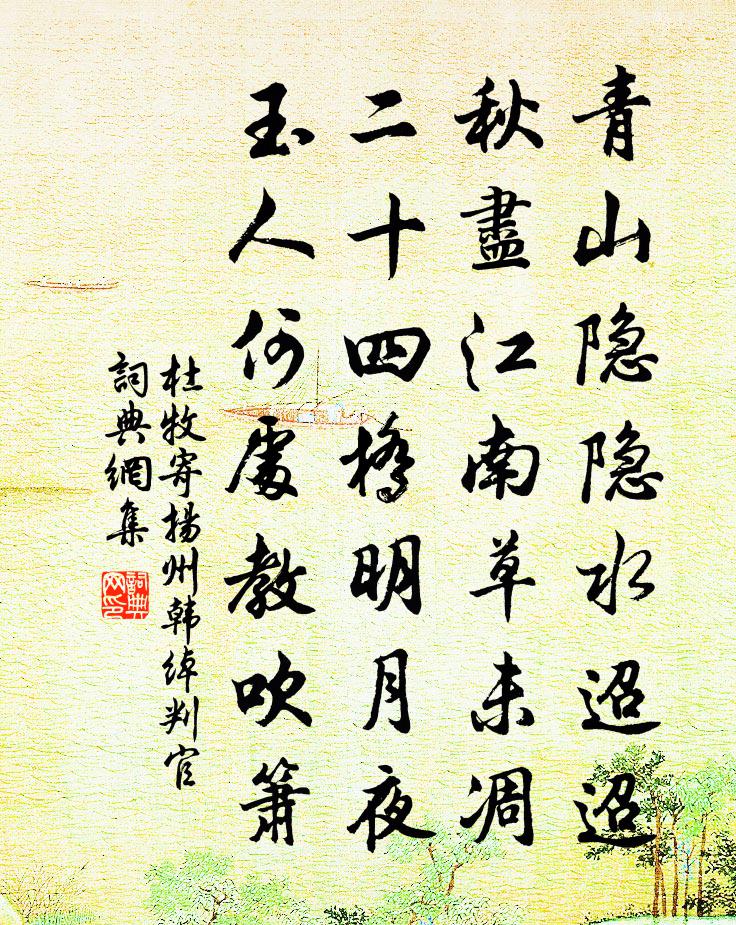 青山隐隐水迢迢
秋盡江南草未凋
二十四橋明月夜
玉人何處教吹簫
杜牧寄揚州韩綽判官
詞典網集
詞典网印